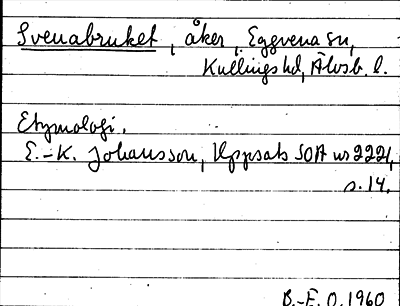 Svenabruket, åker, Eggvena sn,
Kullings hd, Älvsb. l.
Etymologi.
E.-K. Johansson, Uppsats SOA nr 2221,
s. 14.
B.-E. O. 1960